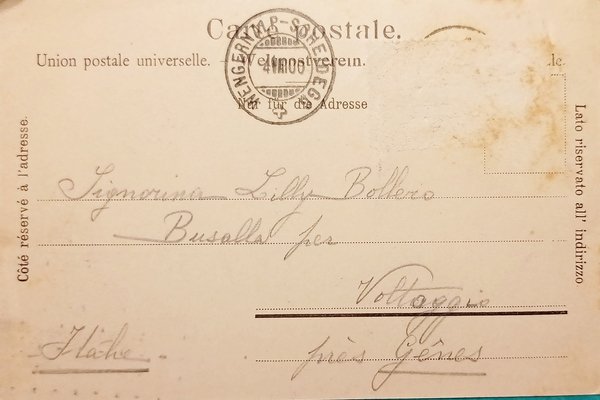 Carte postale.
Union postale universelle. — Weltpostverein. le.
WENGERNALP-SCHEIDEGG
4 VIII 00
Nur für die Adresse
Côté réservé à l'adresse.
Lato riservato all' indirizzo
Signorina Lilly Bollero
Busalla per
Voltaggio
près Gênes
Italie